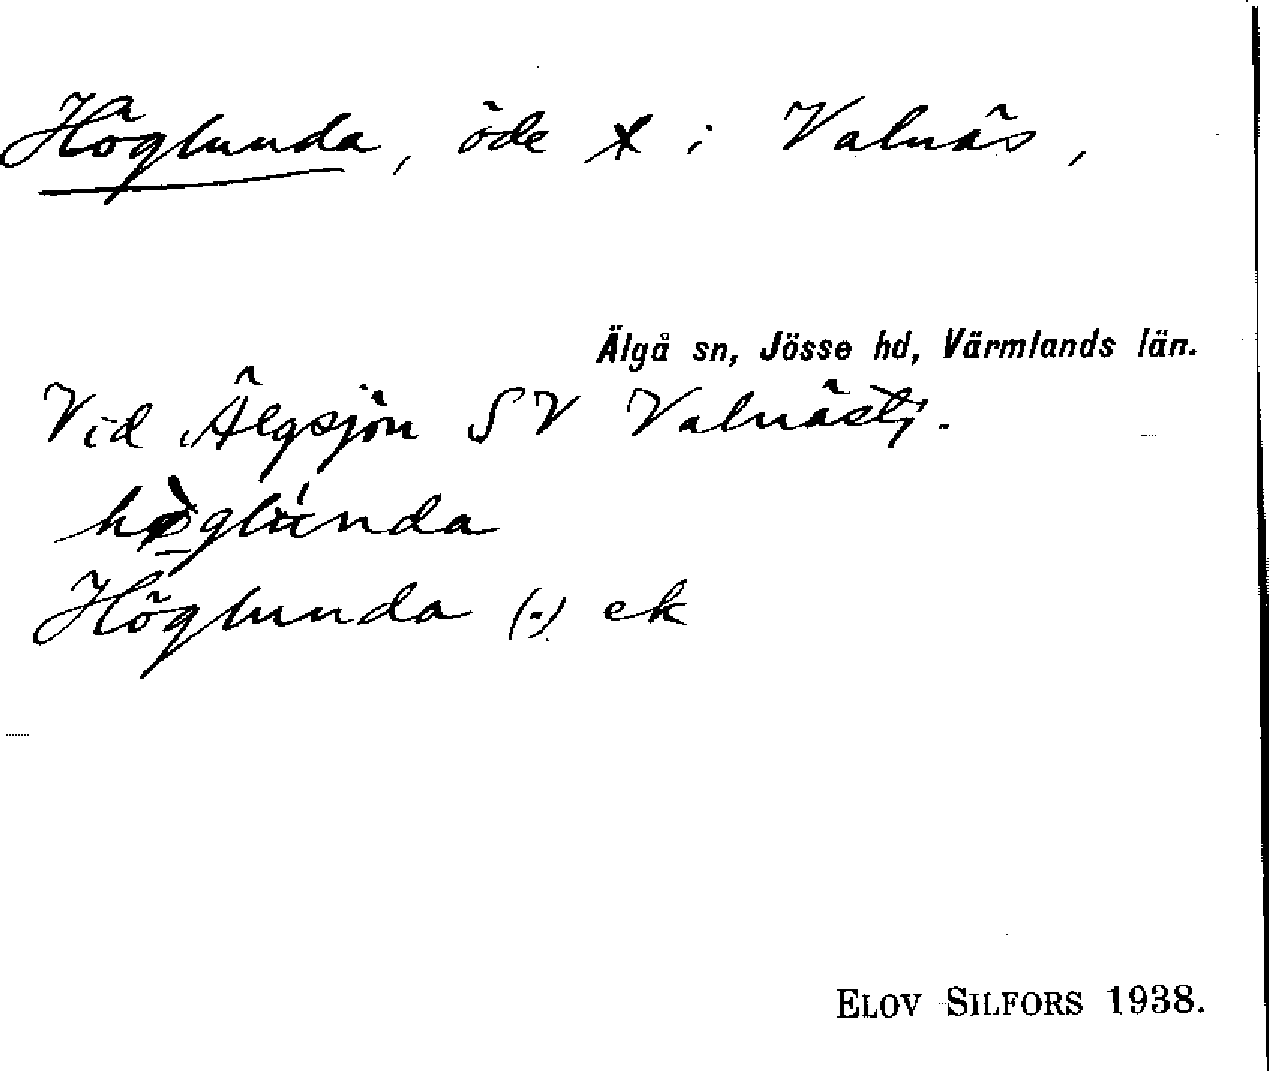 Höglunda, öde t i Valnäs,
Älgå sn, Jösse hd, Värmlands län.
Vid Älgsjön SV Valnästj.
Höglunda (-) ek
ELOV SILFORS 1938.